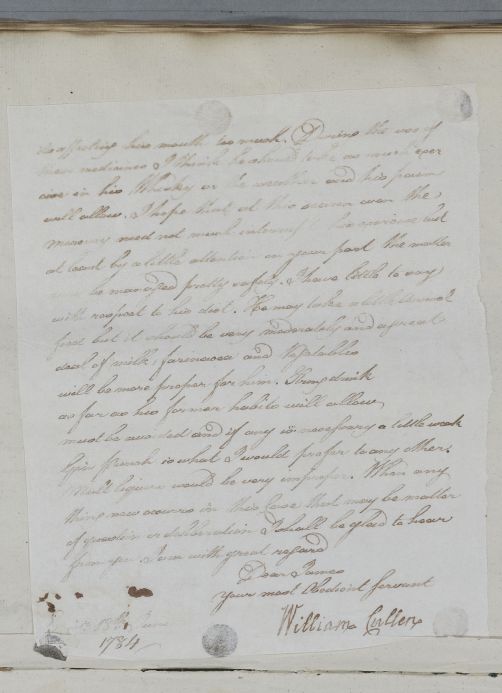 its affecting his mouth too much. During the use of
these medicines I think he should take as much exer
cise in his Whisky as the weather and his pain
will allow. I hope that at this season even the
mercury need not much interrupt his exercise but
at least by a little attention on your part the matter
may be managed pretty safely. I have little to say
with respect to his diet. He may take a little animal
food but it should be very moderately and a great
deal of milk, farinacea and Vegetables
will be more proper for him. Strong drink
as far as his former habits will allow
must be avoided and if any is necessary a little weak
Gin punch is what I would prefer to any other.
Malt liquors would be very improper. When any
thing new occurs in this Case that may be matter
of question or deliberation I shall be glad to hear
from you. I am with great regard
Dear James
Your most Obedient Servant
William Cullen
18th June
1784